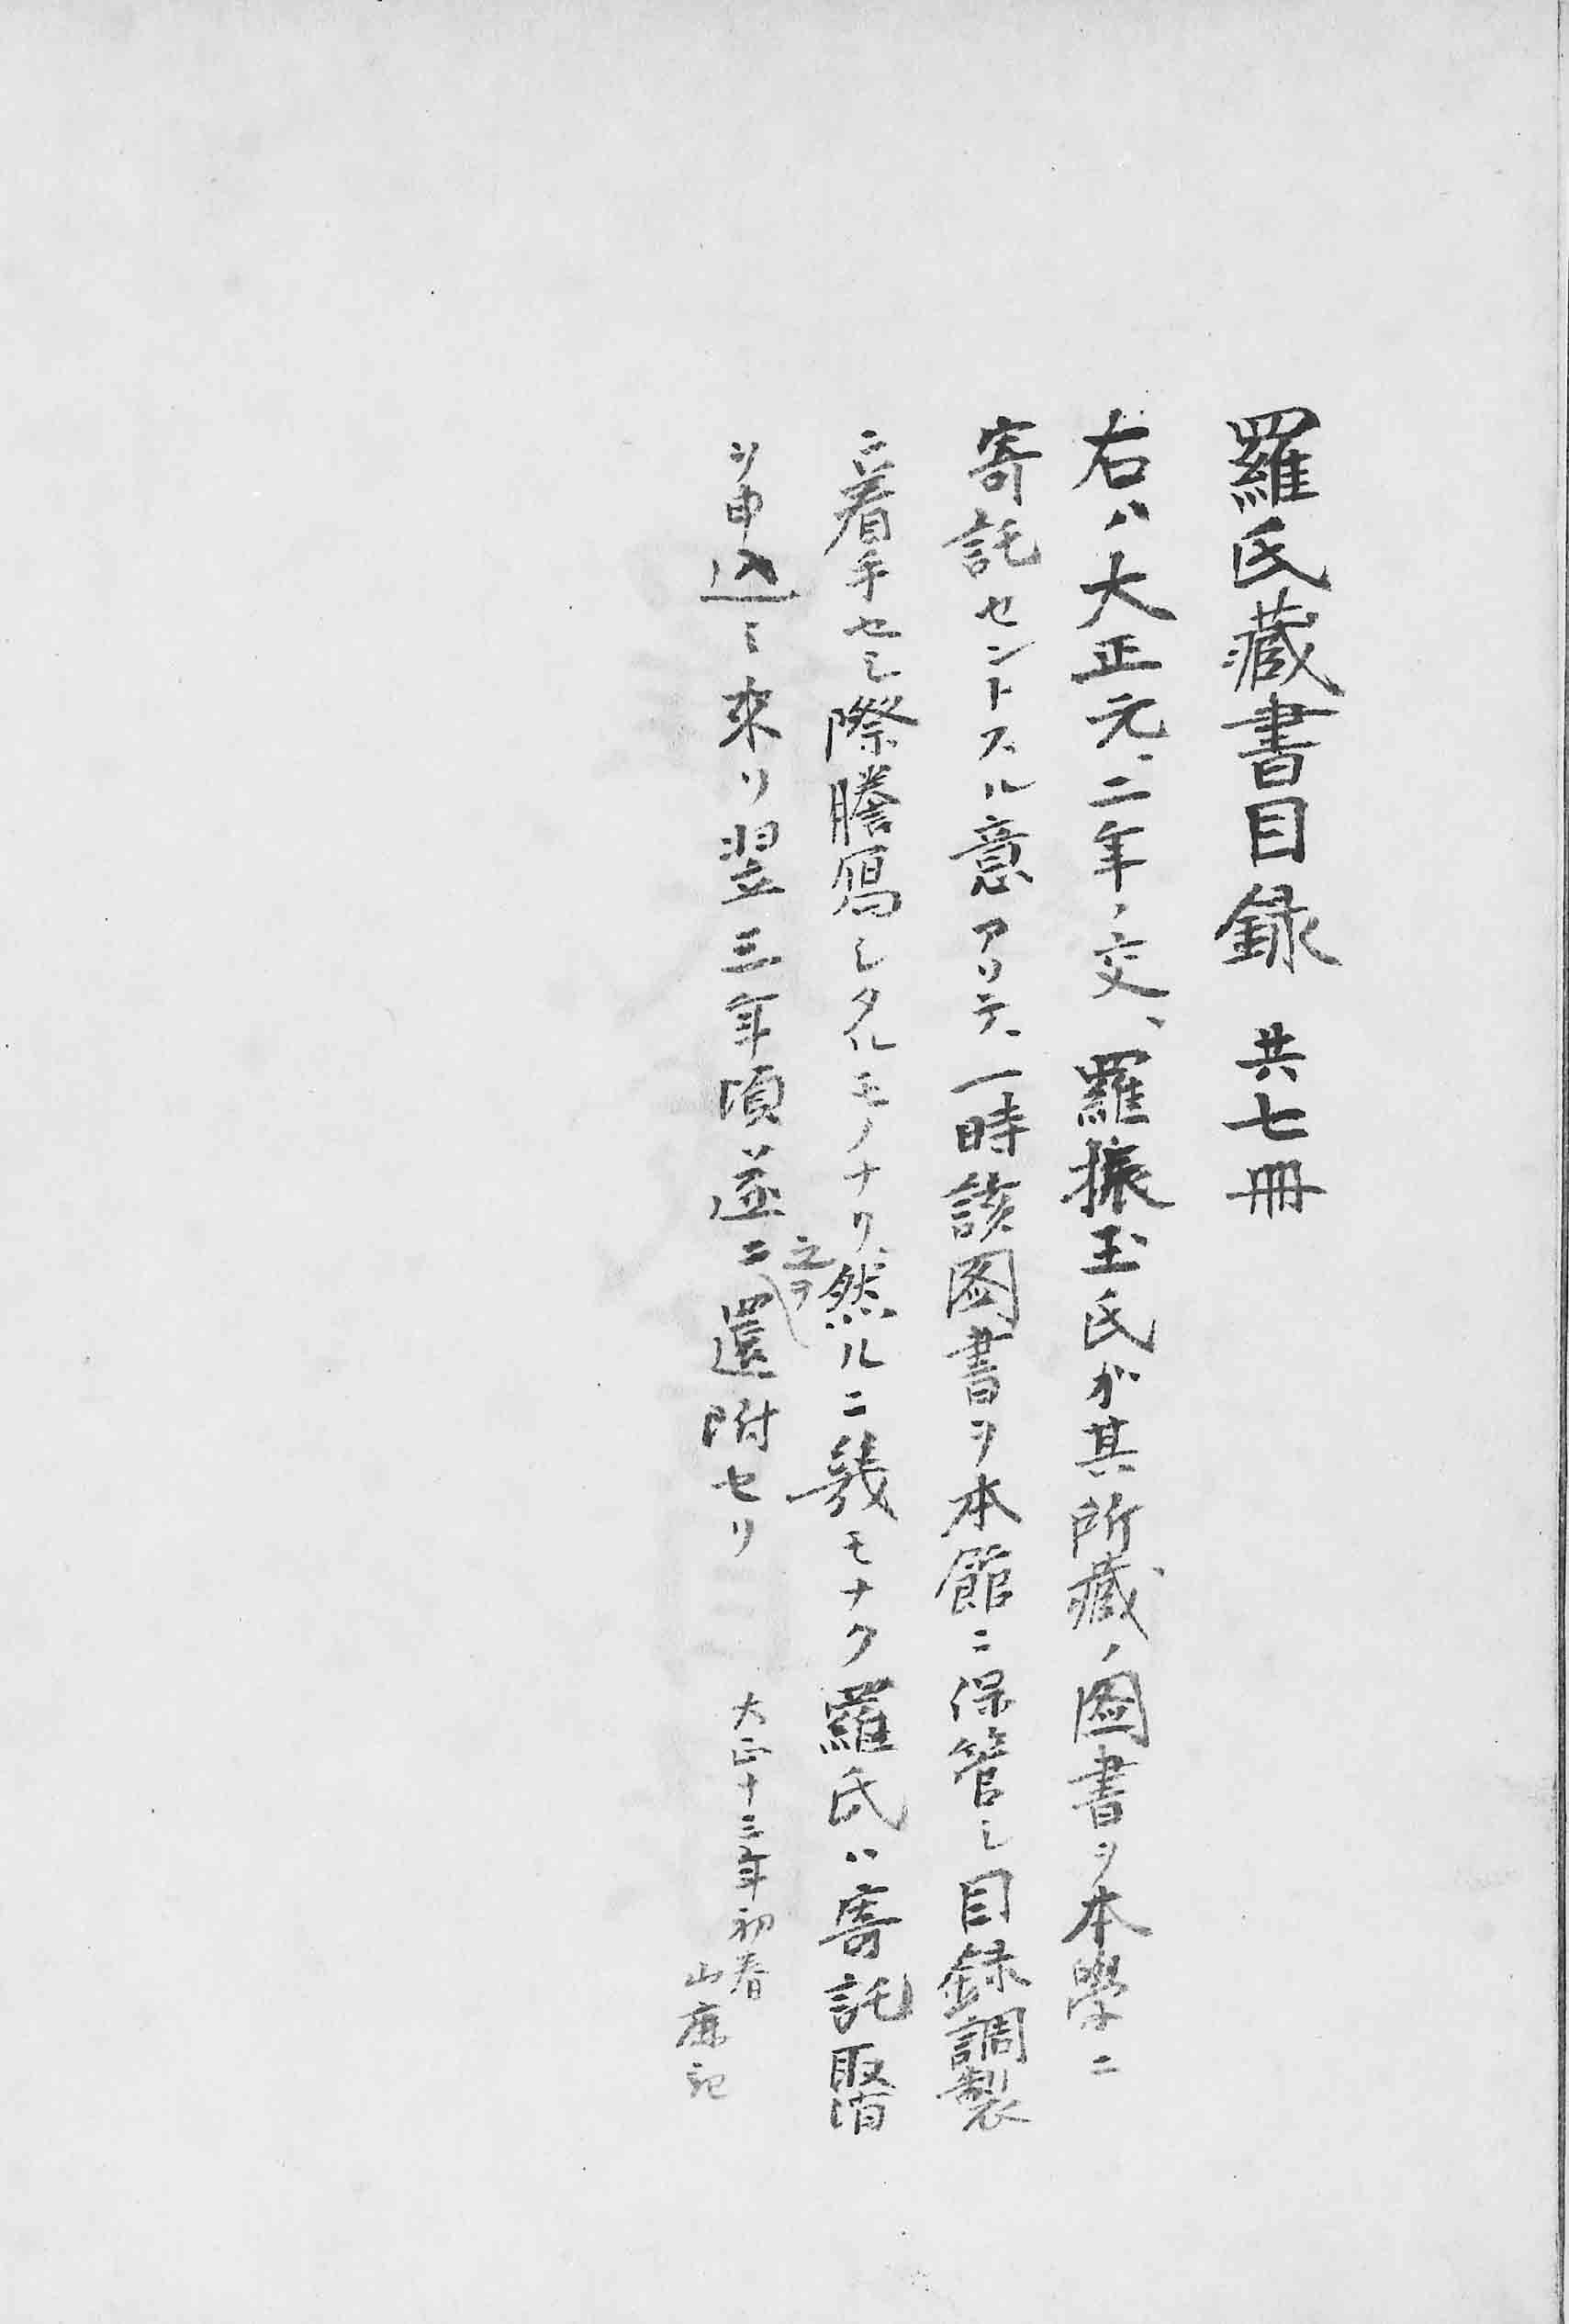 羅氏藏書目録 共七冊
右ハ大正元、二年ノ交、羅振玉氏が其所藏ノ圖書ヲ本學ニ
寄託セントスル意アリテ、一時該圖書ヲ本館ニ保管シ目録調製
ニ着手セシ際謄寫シタルモノナリ、然ルニ幾モナク羅氏ハ寄託取消
ヲ申込ミ來リ翌三年頃遂ニ之ヲ還附セリ
大正十三年初春
山鹿記